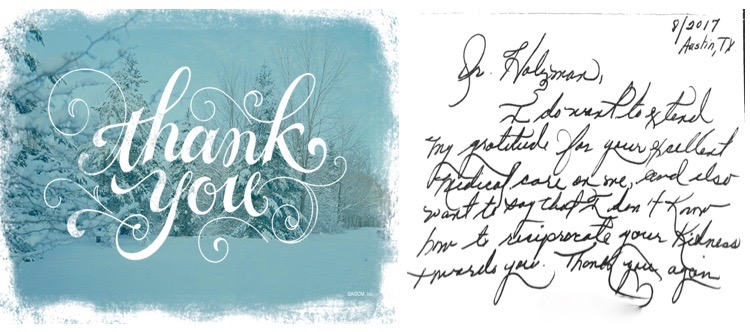 thank
you
©AGCM, Inc.
8/2017
Austin, TX
Dr. Holzman,
I do want to extend
my gratitude for your excellent
medical care on me, and also
want to say that I don't know
how to reciprocate your kidness
towards you. Thank you again